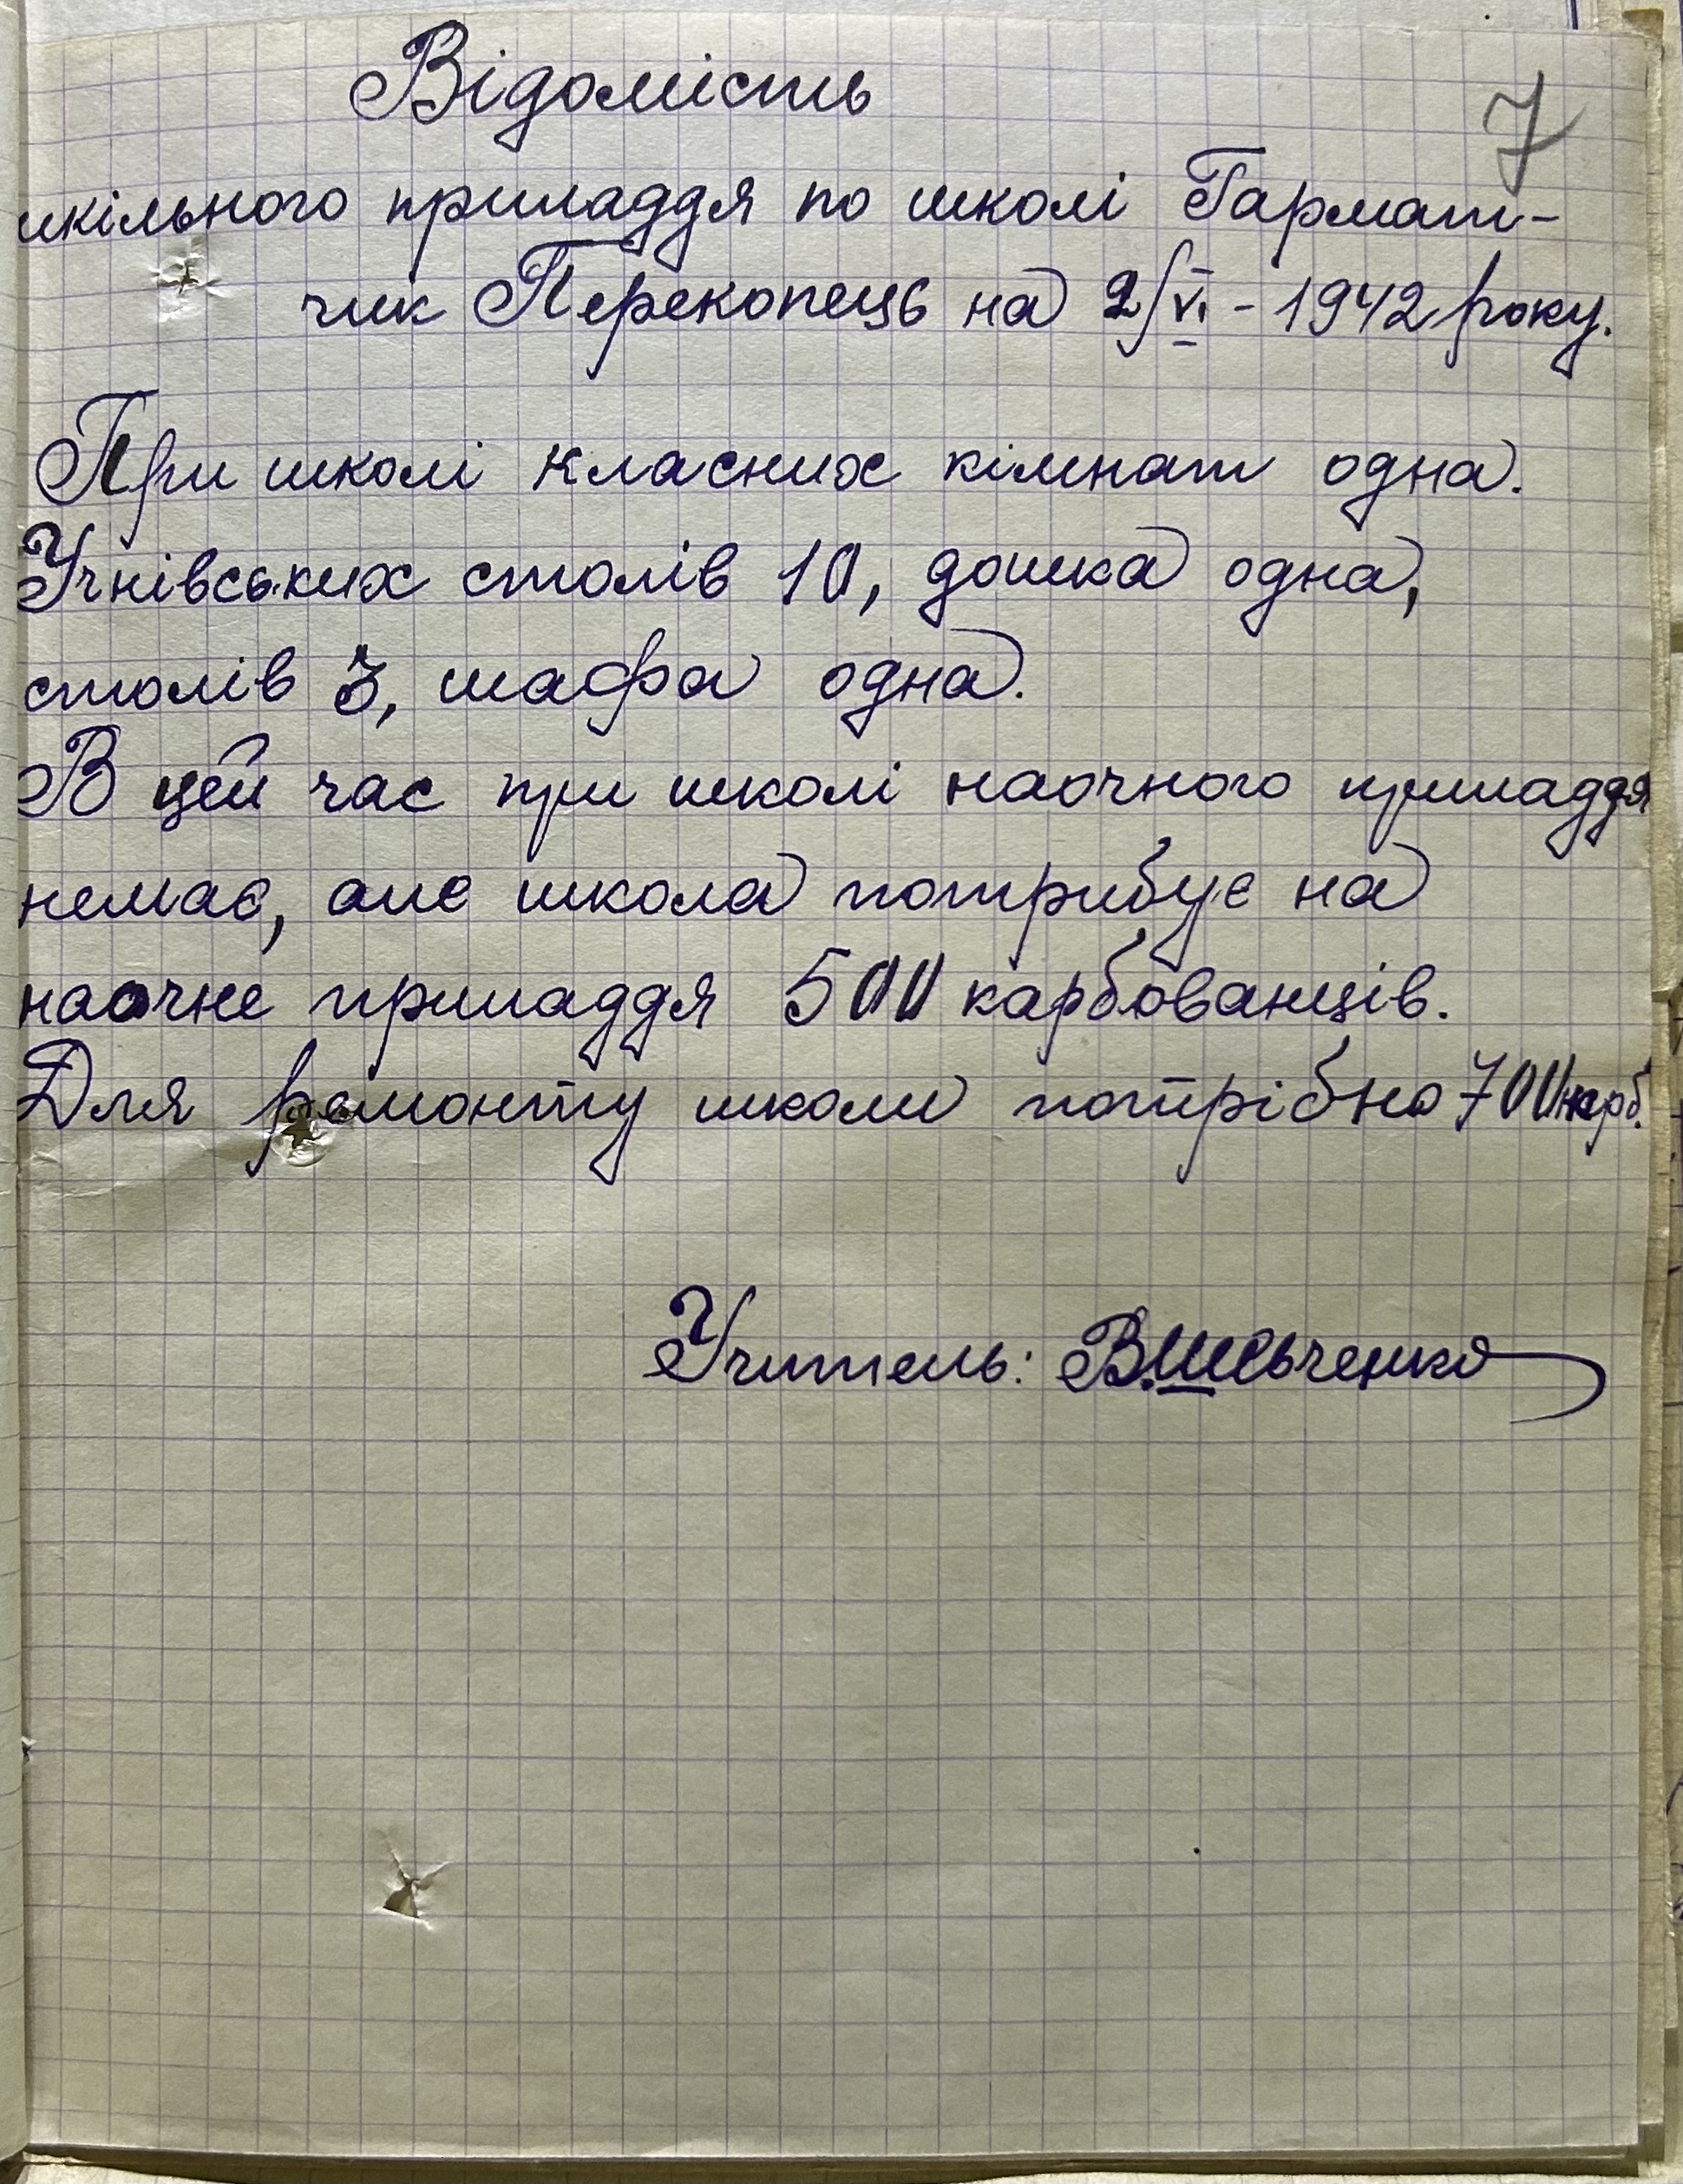 Відомість
7
шкільного приладдя по школі Гармат-
чик Перекопець на 2/VI - 1942 року.
При школі класних кімнат одна.
Учнівських столів 10, дошка одна,
столів 3, шафа одна.
В цей час при школі наочного приладдя
немає, але школа потрибує на
наочне приладдя 500 карбованців.
Для ремонту школи потрібно 700 карб.
Учитель: В. Шевченко